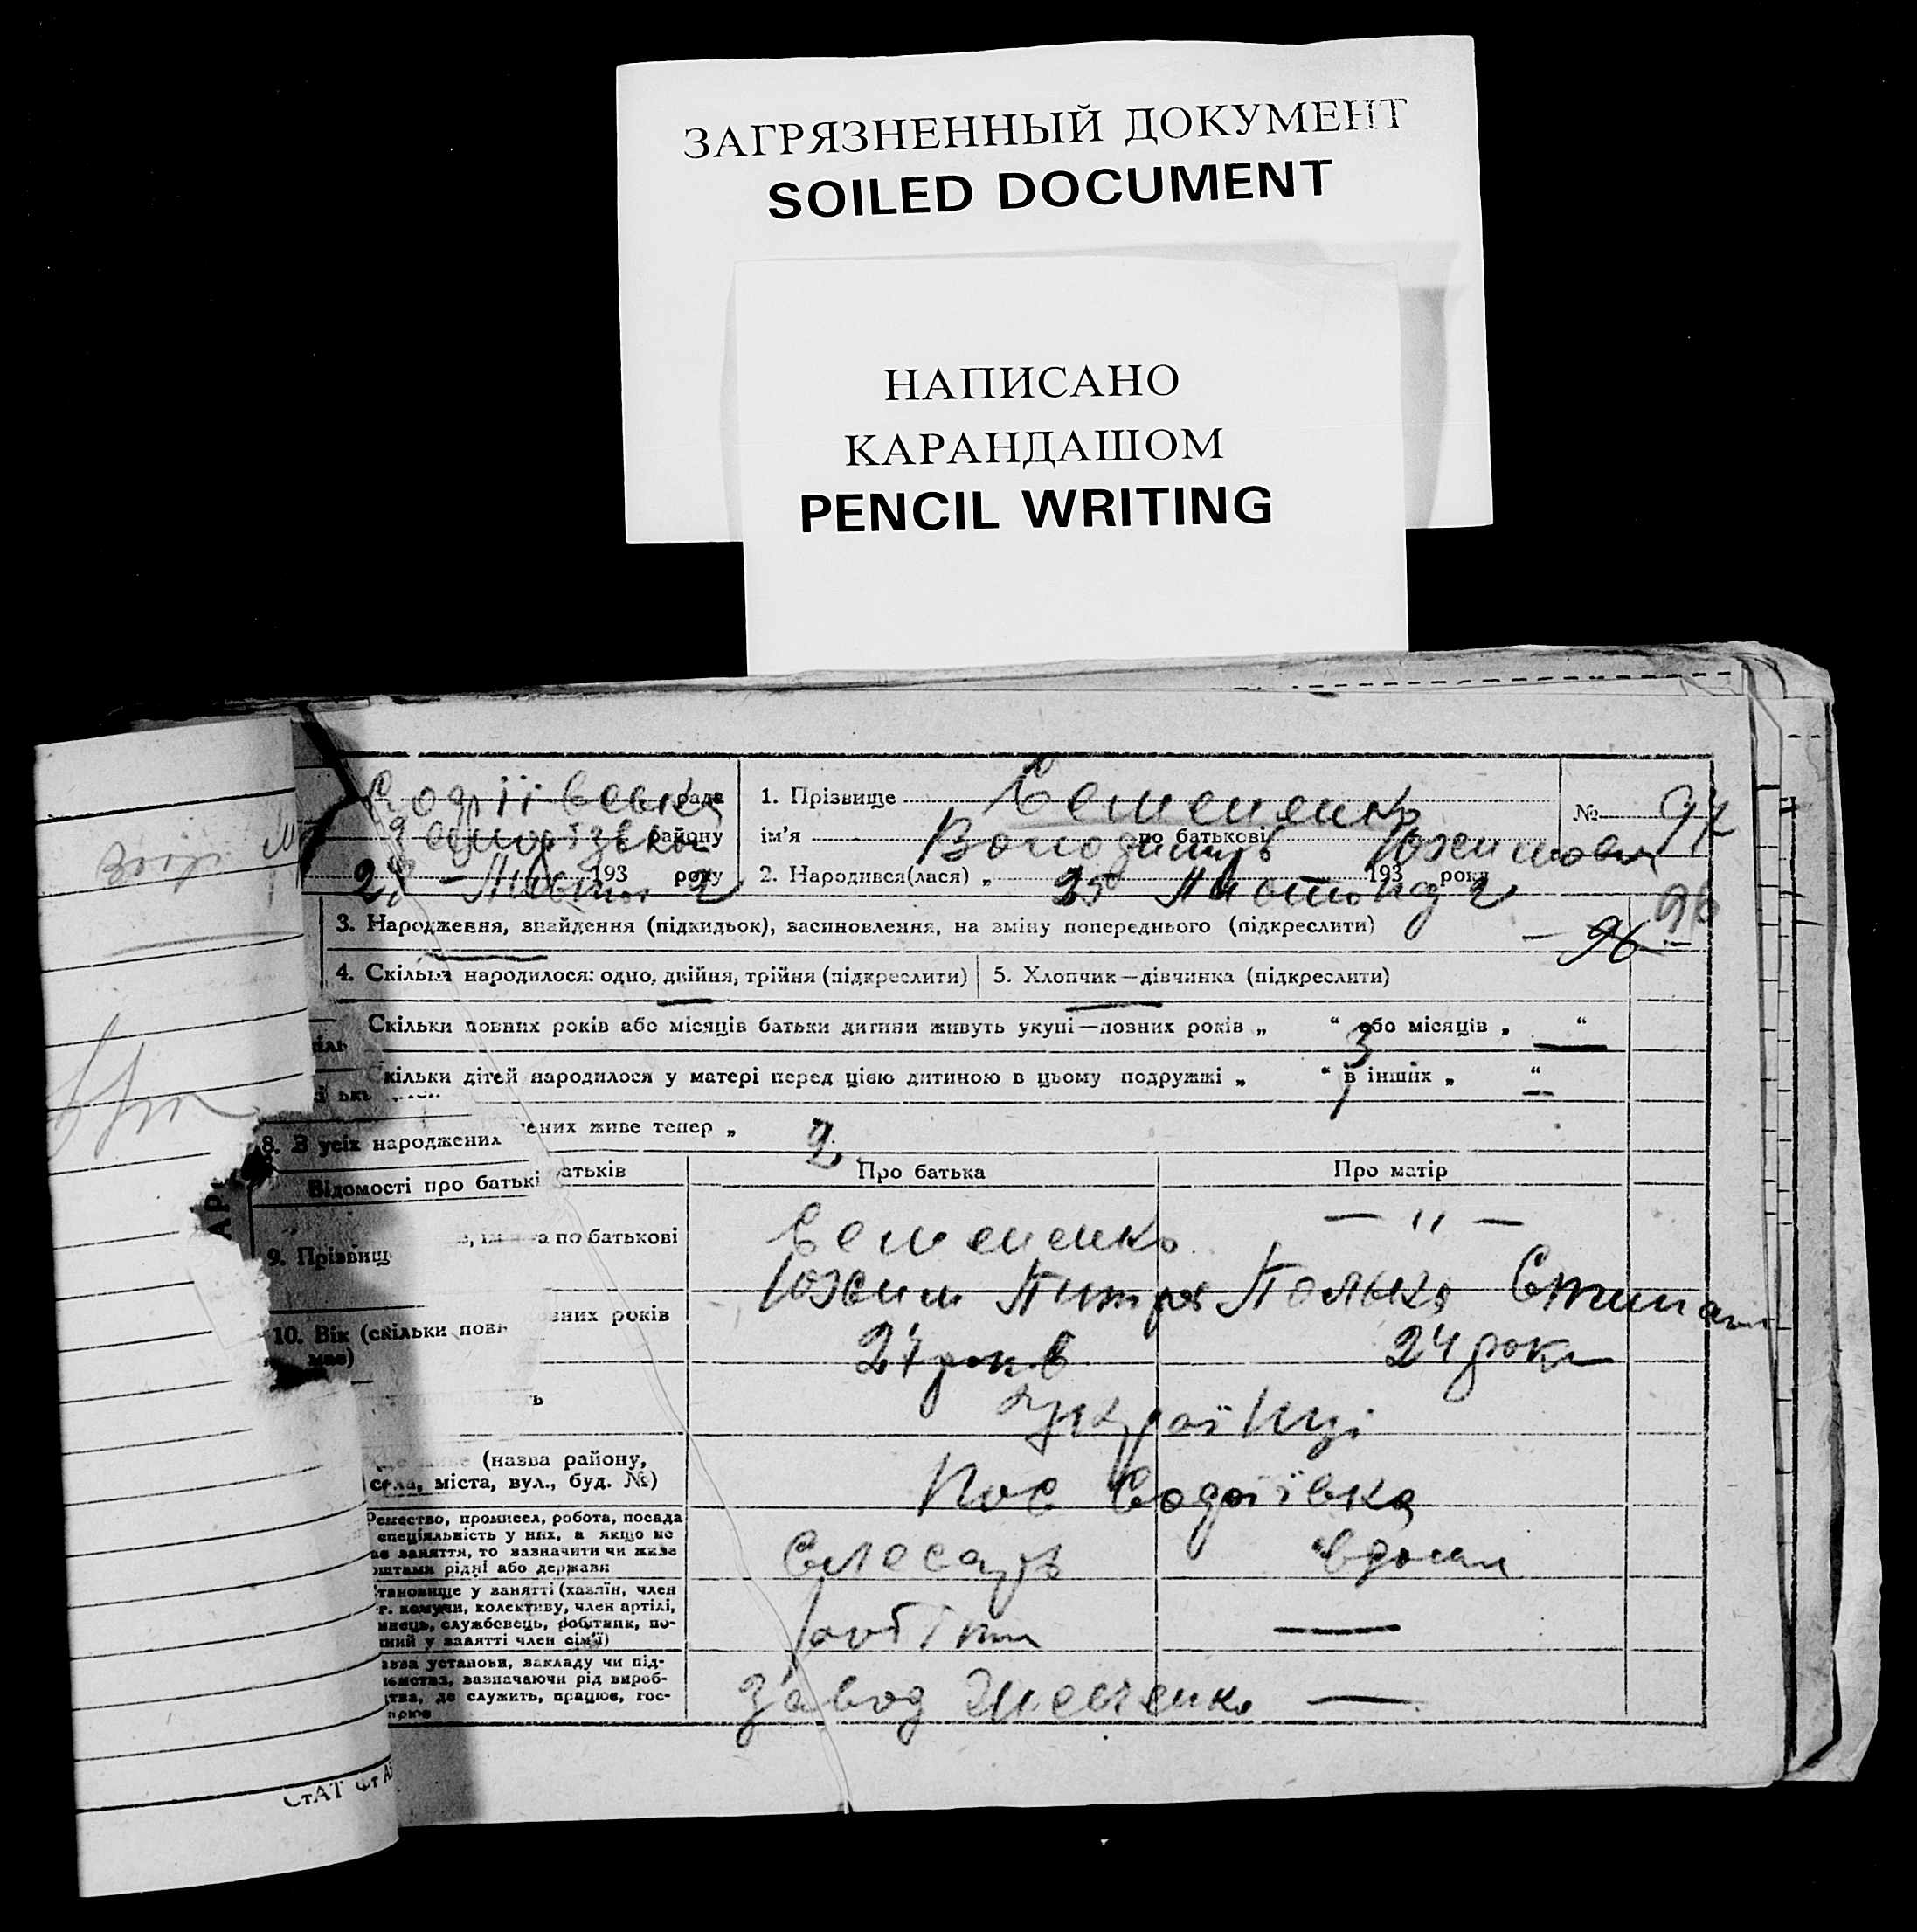 ЗАГРЯЗНЕННЫЙ ДОКУМЕНТ
SOILED DOCUMENT
НАПИСАНО
КАРАНДАШОМ
PENCIL WRITING
рада
району
193 2 року
1. Прізвище Семененко
№ 97
ім'я Володимир по батькові
2. Народився(лася) „ 25 Листопад 193 2 року
96
3. Народження, знайдення (підкидьок), засиновлення, на зміну попереднього (підкреслити)
— 96 —
4. Скільки народилося: одно, двійня, трійня (підкреслити)
5. Хлопчик—дівчинка (підкреслити)
Скільки повних років або місяців батьки дитини живуть укупі—повних років „ 3 “ або місяців „ — “
Скільки дітей народилося у матері перед цією дитиною в цьому подружжі „ 1 “ в інших „ — “
8. З усіх народжених
ених живе тепер „ 2
Відомості про батькі
атьків
Про батька
Про матір
9. Прізвищ
а по батькові
Семененко
— " —
10. Вік (скільки повн
вних років
має)
24 років
24 роки
Українці
(назва району,
села, міста, вул., буд. №)
Ремество, промисел, робота, посада
спеціяльність у них, а якщо не
ає заняття, то зазначити чи живе
оштами рідні або держави
Слесарь
вдома
становище у занятті (хазяїн, член
г. комуни, колективу, член артілі,
службовець, робітник, по-
у занятті член сім'ї)
—
азва установи, закладу чи під-
вазначаючи рід вироб-
тва, де служить, працює, гос-
Завод Шевченко
—
СтАТ Фт